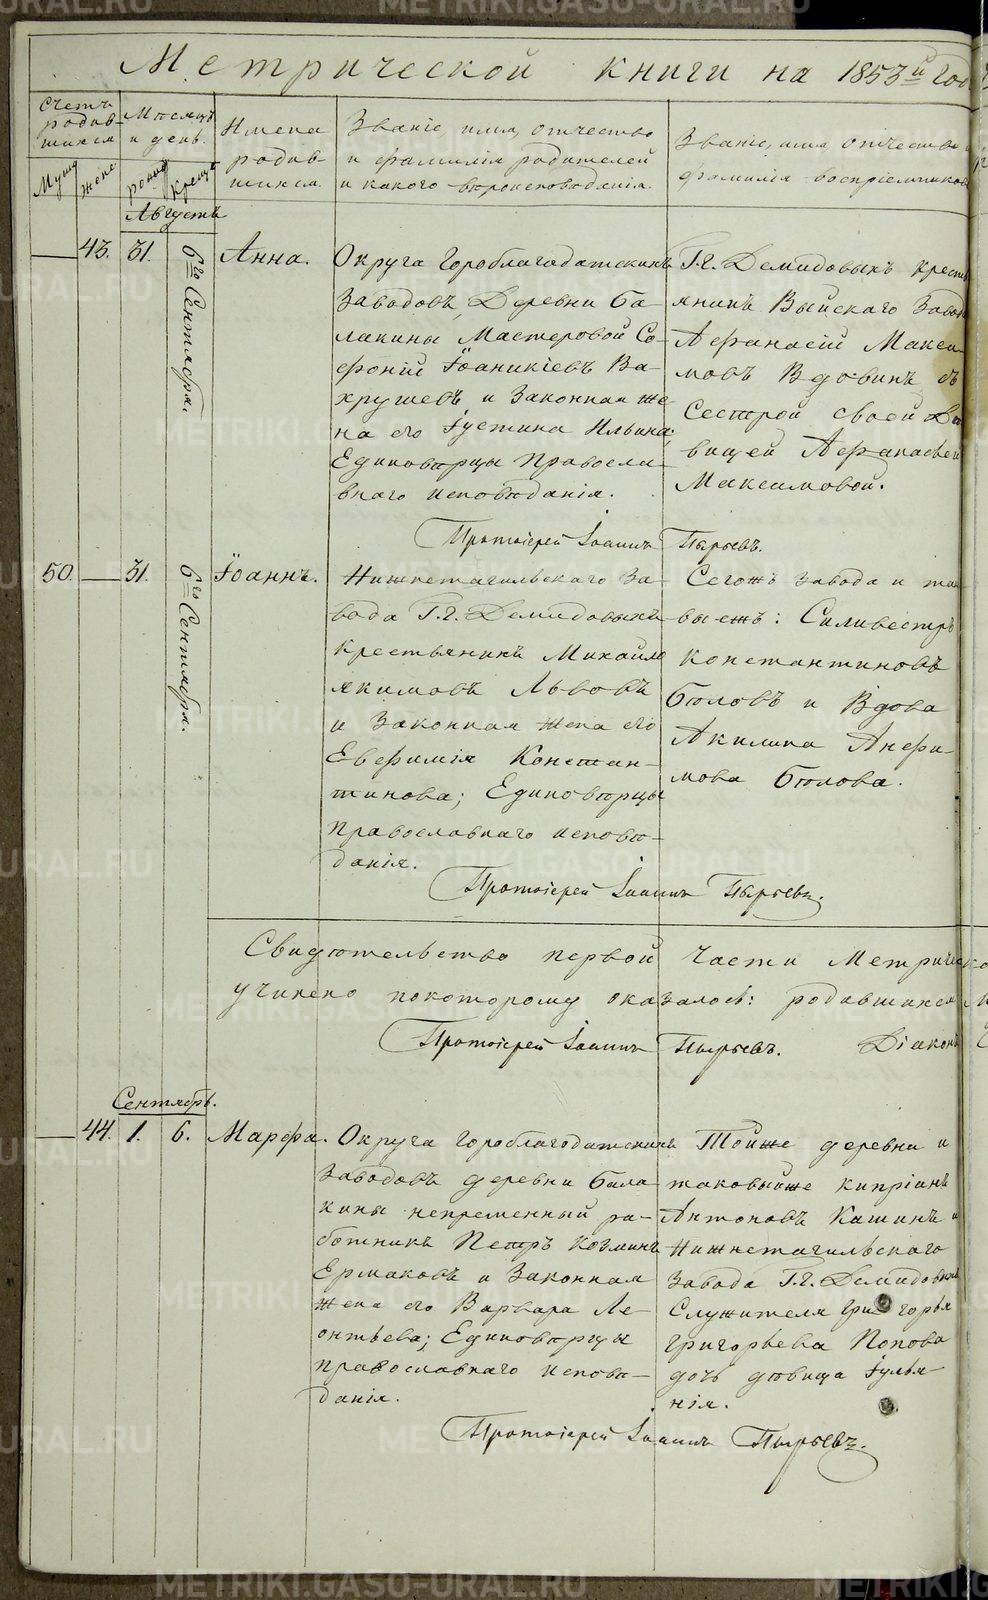 Метрической книги на 1853й год
Счетъ родившихся
Мѣсяцъ и день
Имена родившихся
Званіе, имя, отчество и фамилія родителей и какого вѣроисповѣданія.
Званіе, имя, отчество и фамилія воспріемниковъ
Муж
Жен
рожд
Крещ
Августъ
43. 31. 6го Сентября. Анна.
Округа Гороблагодатскихъ
Заводовъ, Деревни Ба-
лакины Мастеровой Со-
фоній Іоаникіевъ Ва-
хрушевъ и Законная же-
на его Іустина Ильина;
Единовѣрцы Правосла-
внаго исповѣданія.
Г.г. Демидовыхъ крестья-
янинъ Выйскаго Завода
Афанасій Макси-
мовъ Вдовинъ съ
Сестрой своей Дѣ-
вицей Афанасьей
Максимовой.
Протоіерей Іоаннъ Пырьевъ.
50. 31. 6го Сентября. Іоаннъ.
Нижнетагильскаго За-
вода Г.г. Демидовыхъ
крестьянинъ Михайло
Якимовъ Львовъ
и Законная жена его
Евфимія Констан-
тинова; Единовѣрцы
православнаго исповѣ-
данія.
Сегожъ завода и та-
выежъ: Силивестръ
Константиновъ
Бѣловъ и Вдова
Акилина Анфи-
мова Бѣлова.
Протоіерей Іоаннъ Пырьевъ.
Свидѣтельство первой части Метрическо
учинено покоторому оказалось: родившихся М
Протоіерей Іоаннъ Пырьевъ. Діаконъ
Сентябрь.
44. 1. 6. Марфа.
Округа Гороблагодатскихъ
Заводовъ деревни Бала-
кины непременный ра-
ботникъ Петръ Козминъ
Ермаковъ и Законная
жена его Варвара Ле-
онтьева; Единовѣрцы
православнаго исповѣ-
данія.
Тойже деревни и
таковыйже Кипріанъ
Антоновъ Кашинъ и
Нижнетагильскаго
Завода Г.г. Демидовыхъ
Служителя Григорья
Григорьева Попова
дочь дѣвица Іулья-
нія.
Протоіерей Іоаннъ Пырьевъ.
METRIKI.GASO-URAL.RU